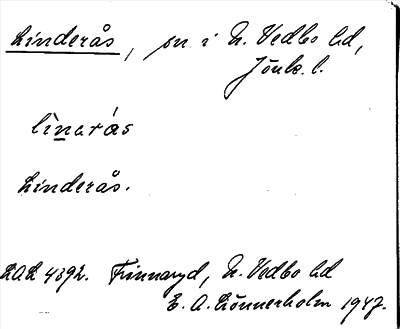 Linderås, sn i N. Vedbo hd,
Jönk. l.
lìnarás
Linderås.
LAL 4392. Finnaryd, N. Vedbo hd
E. A. Lönnerholm 1947.